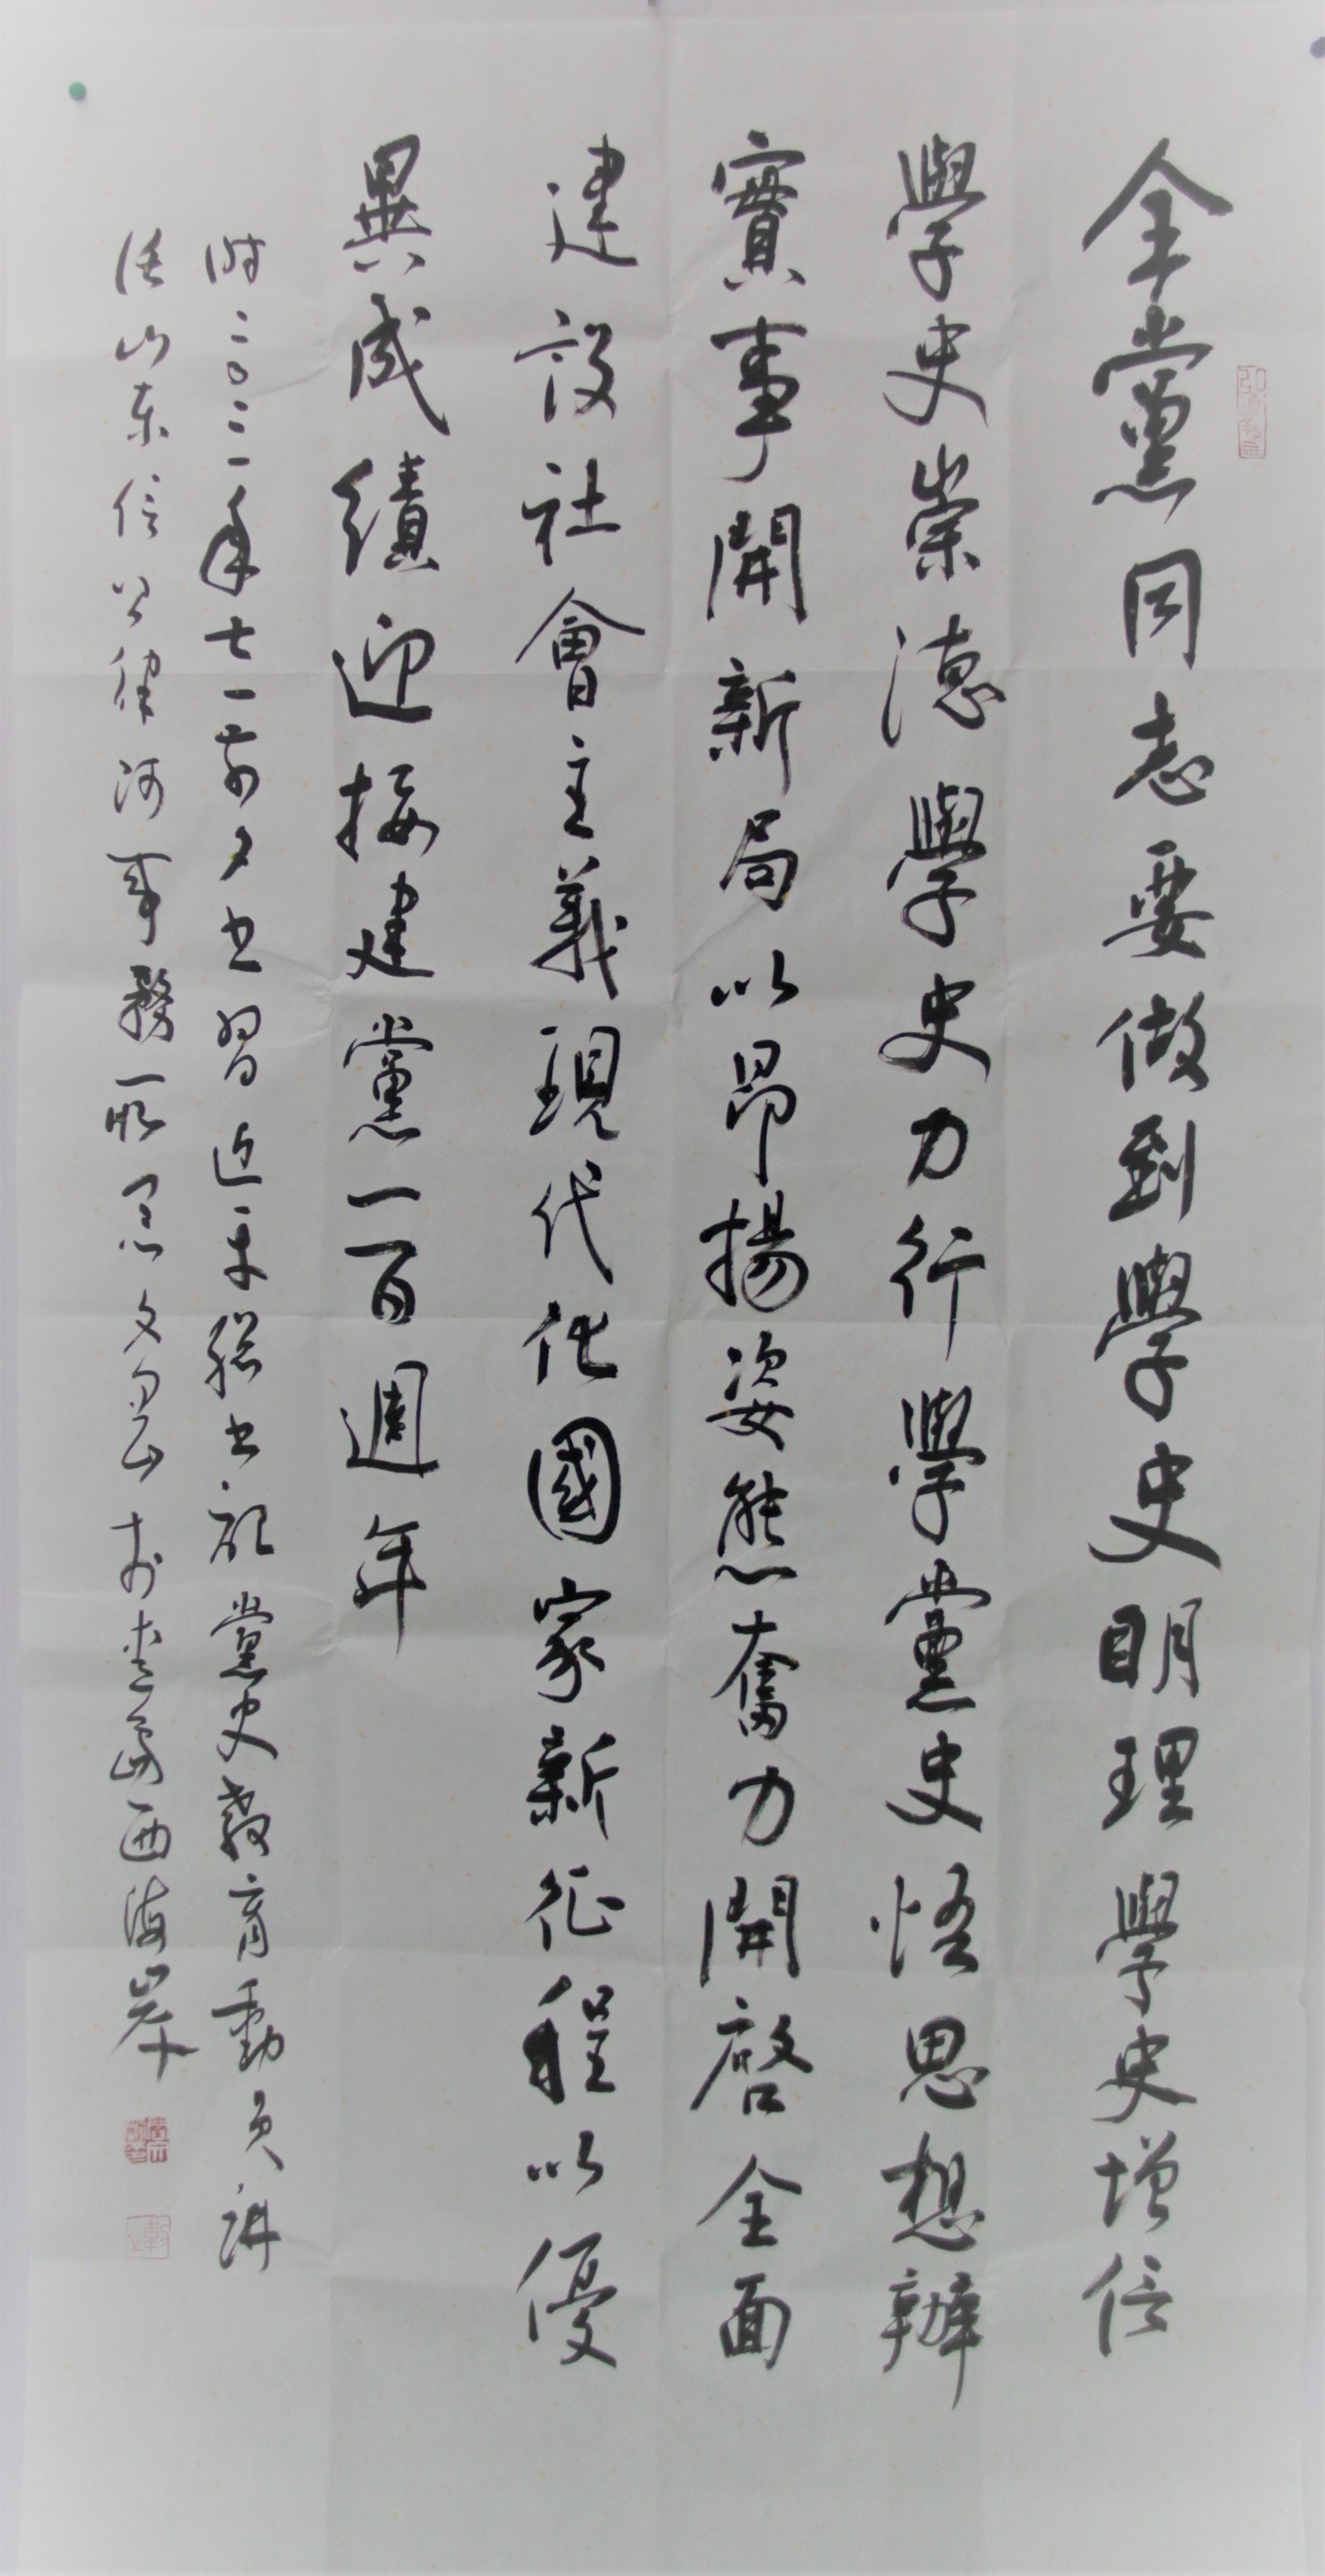 全黨同志要做到學史明理學史增信
學史崇德學史力行學黨史悟思想辦
實事開新局以昂揚姿態奮力開啓全面
建設社會主義現代化國家新征程以優
異成績迎接建黨一百週年
時二〇二一年七一前夕书習近平總书記黨史教育動員講
山东信公律师事務所文於青島西海岸